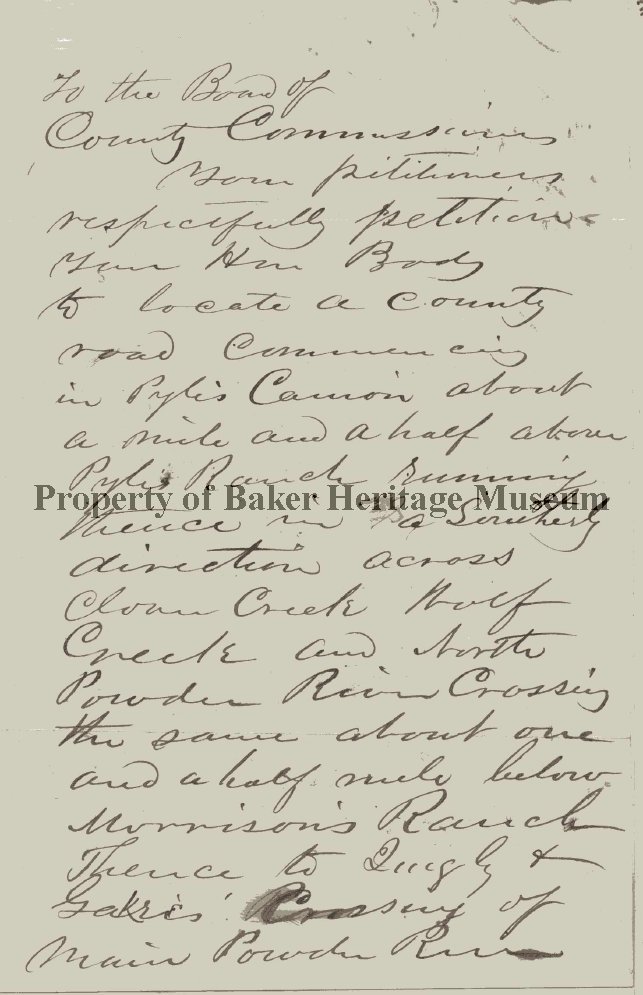 To the Board of
County Commissioners
Your petitioners
respectfully petition
your Hon Body
to locate a county
road commencing
in Pyles Cannon about
a mile and a half above
Pyles Ranch running
Property of Baker Heritage Museum
thence in a Southerly
direction across
Clover Creek Wolf
Creek and North
Powder River Crossing
the same about one
and a half mile below
Morrison's Ranch
Thence to &
Crossing of
Main Powder River